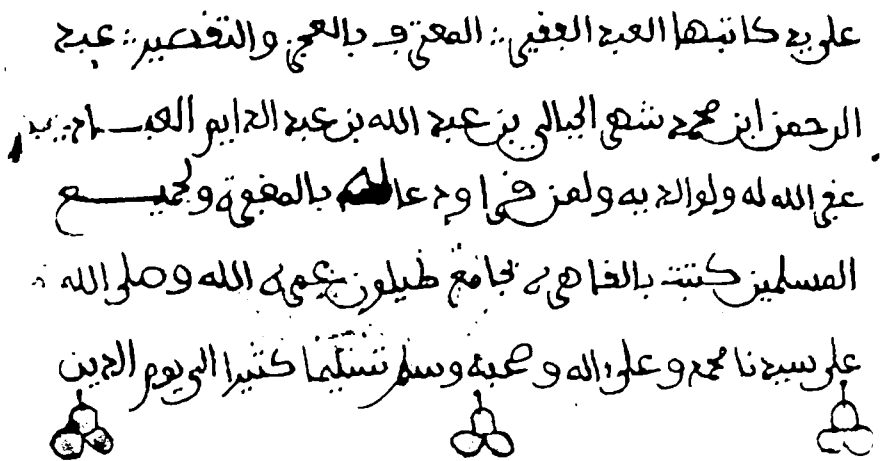 على يد كاتبها العبد الفقير المعترف بالعجز والتقصير عبد
الرحمن ابن محمد شهر الجبالي بن عبد الله بن عبد الدايم العبادي
غفر الله له ولوالديه ولمن قرا ودعا لهم بالمغفرة ولجميع
المسلمين كتبت بالقاهرة بجامع طيلون عمره الله وصلى الله
على سيدنا محمد وعلى ءاله وصحبه وسلم تسليما كثيرا الى يوم الدين